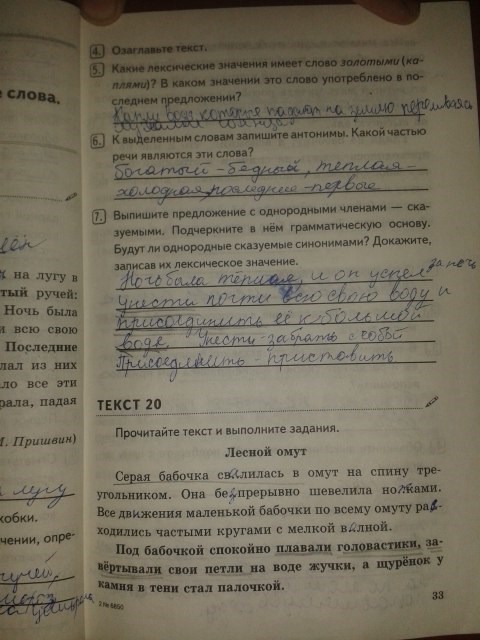 е слова.
на лугу в
тый ручей:
Ночь была
и всю свою
Последние
лал из них
ло все эти
рала, падая
М. Пришвин)
лугу
кобки.
чении, опре-
4. Озаглавьте текст.
5. Какие лексические значения имеет слово золотыми (ка-
плями)? В каком значении это слово употреблено в по-
следнем предложении?
Капли воды которые падают на землю переливаясь
6. К выделенным словам запишите антонимы. Какой частью
речи являются эти слова?
богатый - бедный, тёплая -
холодная, последние - первые
7. Выпишите предложение с однородными членами — ска-
зуемыми. Подчеркните в нём грамматическую основу.
Будут ли однородные сказуемые синонимами? Докажите,
записав их лексическое значение.
Ночь была тёплая, и он успел за ночь
унести почти всю свою воду и
присоединить её к большой
воде. Унести - забрать с собой
Присоединить - приставить
ТЕКСТ 20
Прочитайте текст и выполните задания.
Лесной омут
Серая бабочка свалилась в омут на спину тре-
угольником. Она безпрерывно шевелила ножками.
Все движения маленькой бабочки по всему омуту рас-
ходились частыми кругами с мелкой волной.
Под бабочкой спокойно плавали головастики, за-
вёртывали свои петли на воде жучки, а щурёнок у
камня в тени стал палочкой.
33